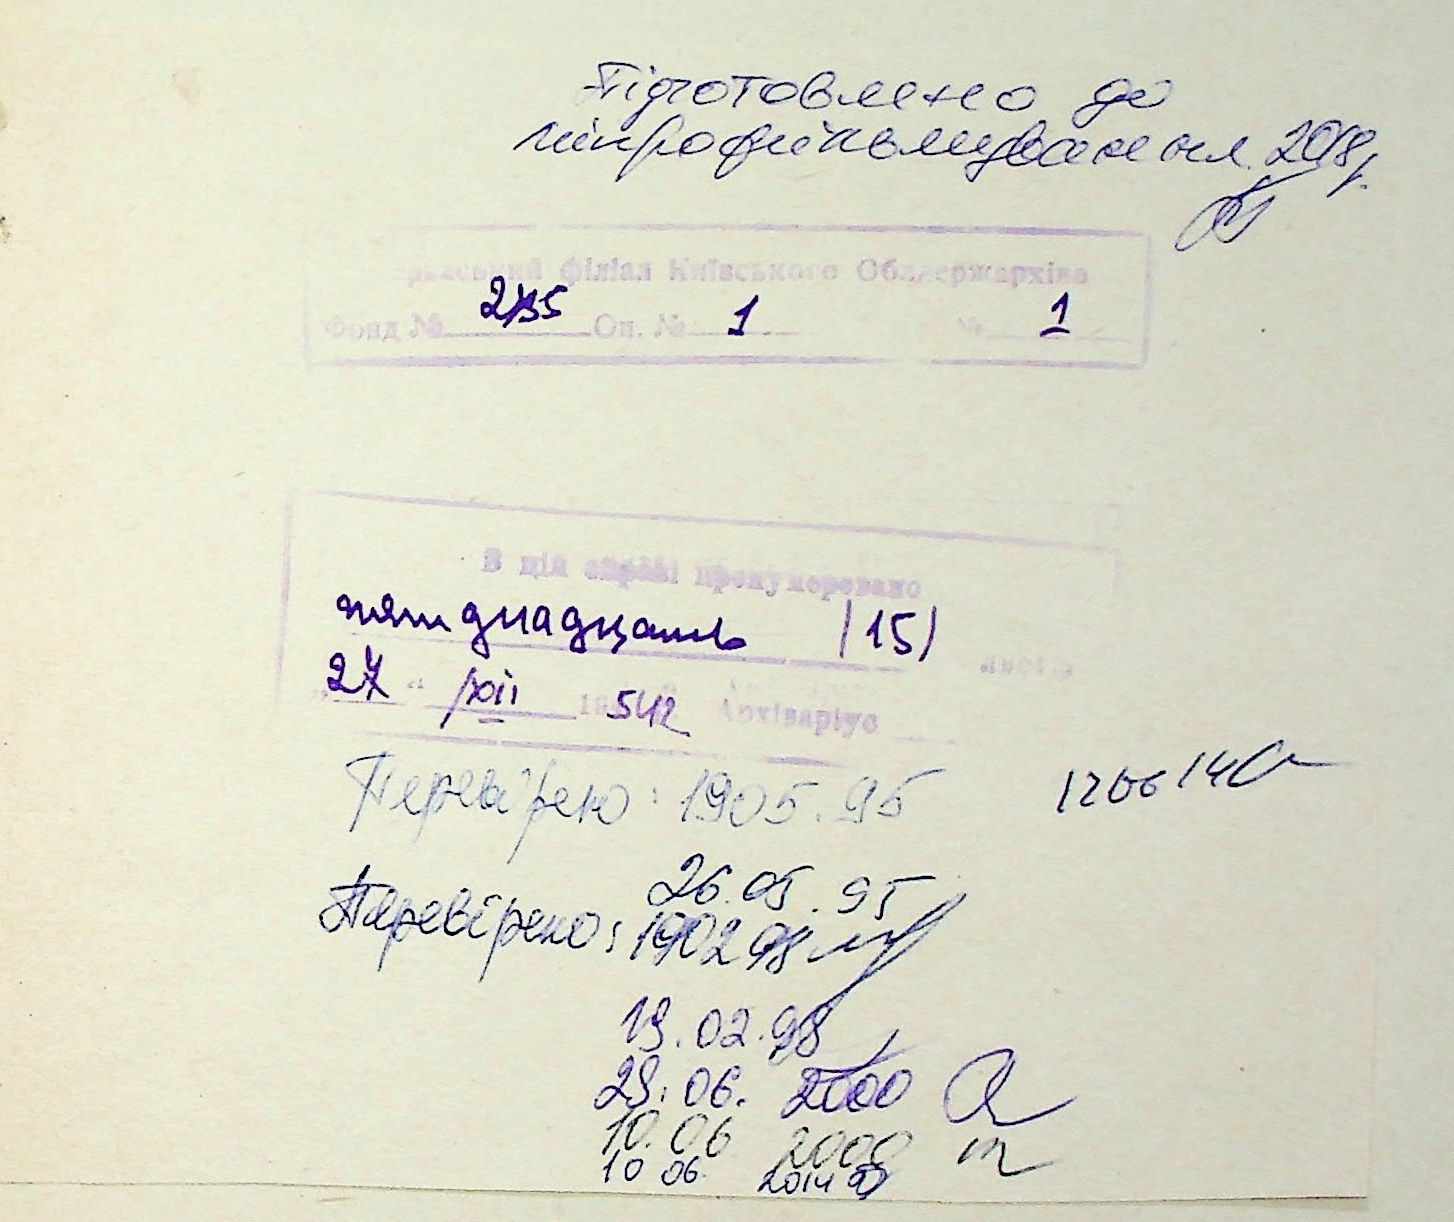 Підготовлено до
мікрофільмування 2018р.
філіал Київського Облдержархіва
Фонд № Оп. № 1 № 1
В цій справі пронумеровано
пятнадцать (15)
27 " XII Архіваріус
Перевірено: 19 05. 95
26. 05. 95
Перевірено: 19 02 98
19. 02. 98
29. 06. 2000
10. 06
10 06 2014